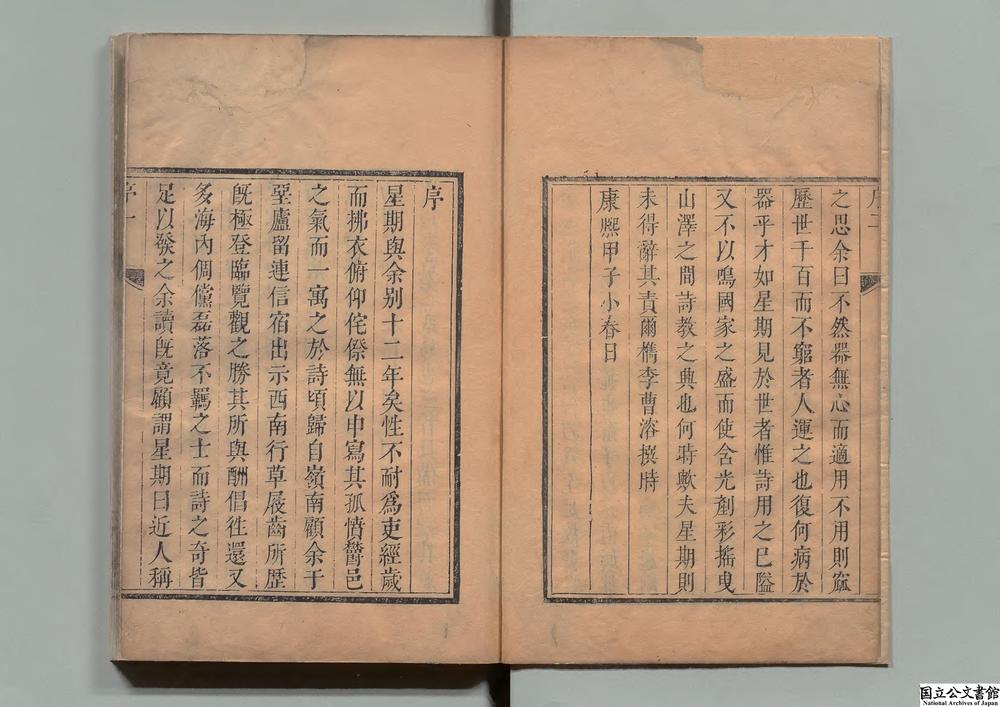 序二
之思余曰不然器無心而適用不用則窳
歷世千百而不窮者人運之也復何病於
器乎才如星期見於世者惟詩用之巳隘
又不以鳴國家之盛而使含光剷彩摇曳
山澤之間詩教之典也何時歟夫星期則
未得辭其責爾檇李曹溶撰時
康熙甲子小春日
序
星期與余別十二年矣性不耐爲吏經歲
而拂衣俯仰侘傺無以申寫其孤憤鬱邑
之氣而一寓之於詩頃歸自嶺南顧余于
堊廬留連信宿出示西南行草屐齒所歷
旣極登臨覽觀之勝其所與酬倡徃還又
多海內倜儻磊落不羈之士而詩之奇皆
足以發之余讀旣竟顧謂星期曰近人稱
序一
国立公文書館
National Archives of Japan